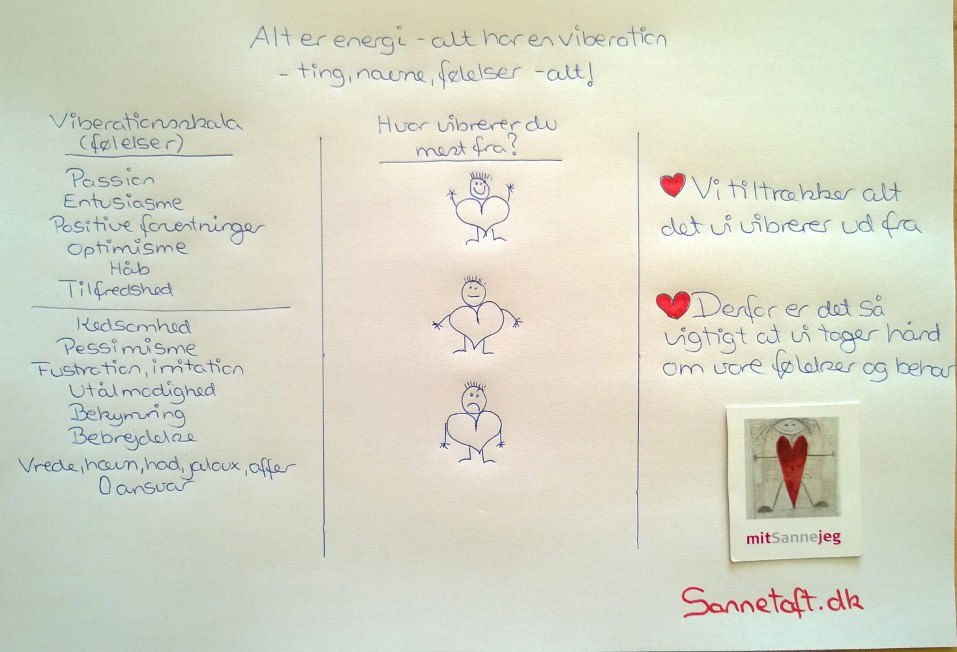 Alt er energi - alt har en viberation
- ting, navne, følelser - alt!
Viberationsskala
(følelser)
Passion
Entusiasme
Positive forentninger
Optimisme
Håb
Tilfredshed
Kedsomhed
Pessimisme
Fustration, irritation
Utålmodighed
Bekymring
Bebrejdelse
Vrede, hævn, had, jaloux, offer
0 ansvar
Hvor vibrerer du
mest fra?
Vi tiltrækker alt
det vi vibrerer ud fra
Derfor er det så
vigtigt at vi tager hånd
om vore følelser og behov
mitSannejeg
Sannetoft.dk